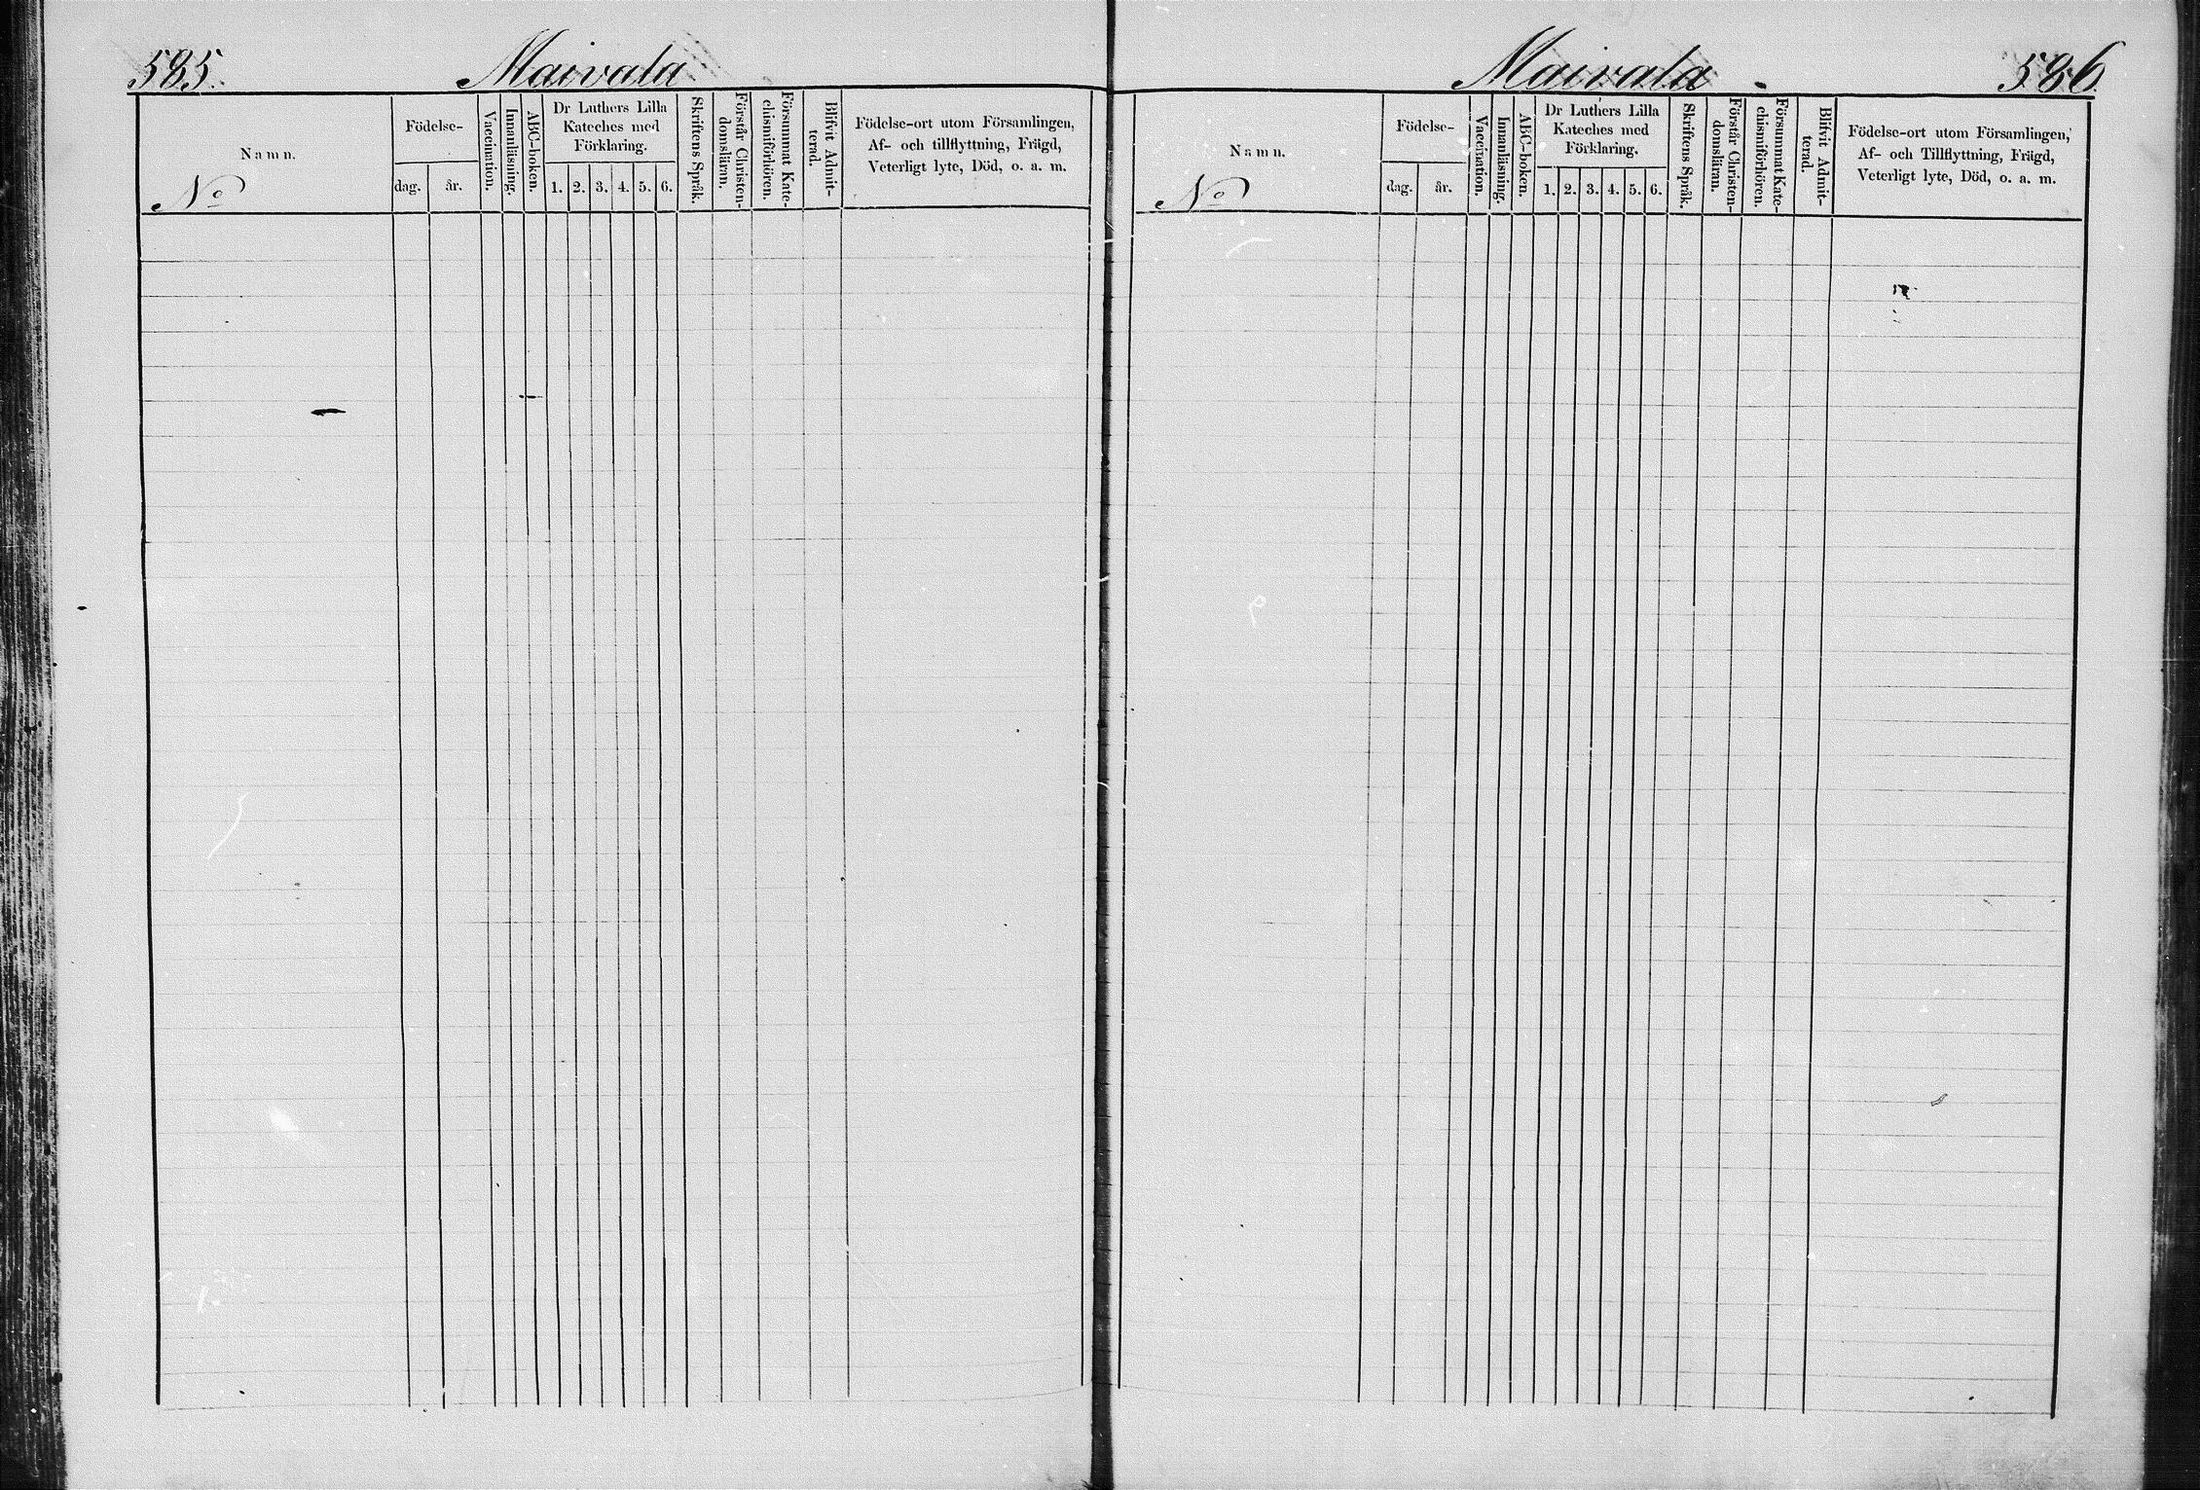 585.
Maivala
Namn.
No
Födelse-
dag.
år.
Vaccination.
Innanläsning.
ABC-boken.
Dr Luthers Lilla
Kateches med
Förklaring.
1. 2. 3. 4. 5. 6.
Skriftens Språk.
Förstår Christen-
domsläran.
Försummat Kate-
chismiförhören.
Blifvit Admit-
terad.
Födelse-ort utom Församlingen,
Af- och tillflyttning, Frägd,
Veterligt lyte, Död, o. a. m.
Maivala
586
Namn.
No
Födelse-
dag.
år.
Vaccination.
Innanläsning.
ABC-boken.
Dr Luthers Lilla
Kateches med
Förklaring.
1. 2. 3. 4. 5. 6.
Skriftens Språk.
Förstår Christen-
domsläran.
Försummat Kate-
chismiförhören.
Blifvit Admit-
terad.
Födelse-ort utom Församlingen,
Af- och Tillflyttning, Frägd,
Veterligt lyte, Död, o. a. m.